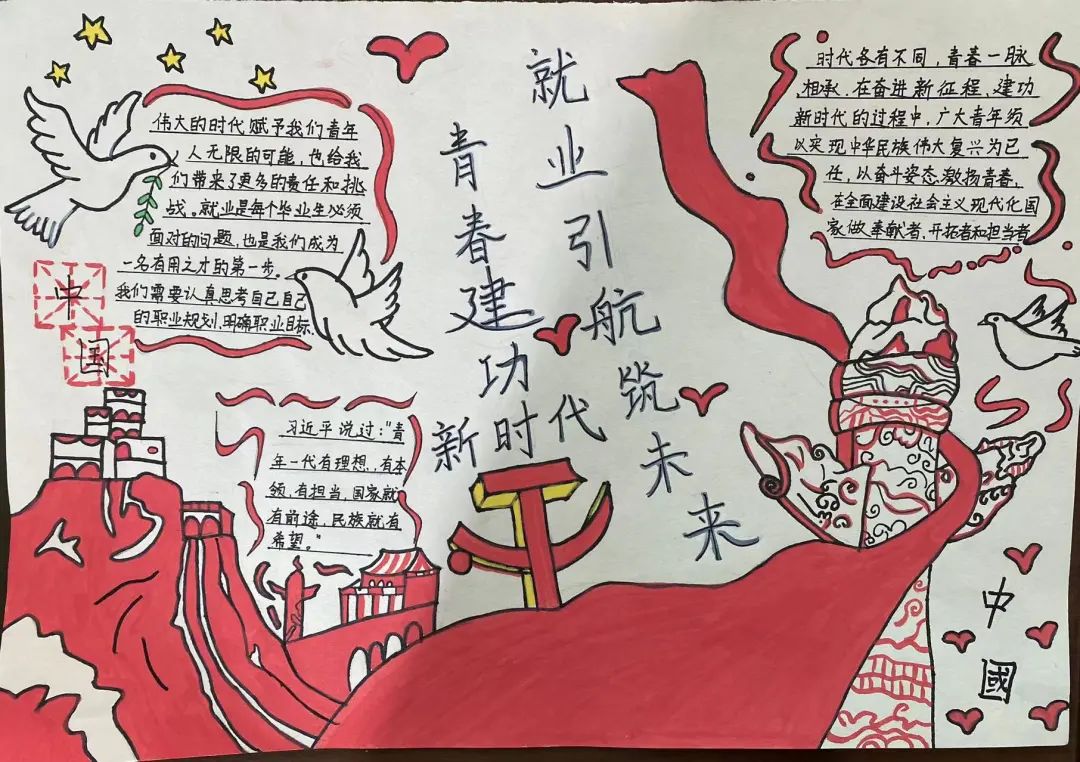 就业引航筑未来
青春建功
新时代
伟大的时代赋予我们青年
人无限的可能，也给我
们带来了更多的责任和挑
战。就业是每个毕业生必须
面对的问题，也是我们成为
一名有用之才的第一步。
我们需要认真思考自己自己
的职业规划，明确职业目标，
中
国
习近平说过：“青
年一代有理想，有本
领，有担当，国家就
有前途，民族就有
希望。”
时代各有不同，青春一脉
相承。在奋进新征程、建功
新时代的过程中，广大青年须
以实现中华民族伟大复兴为己
任，以奋斗姿态激扬青春，
在全面建设社会主义现代化国
家做奉献者、开拓者和担当者
中
國